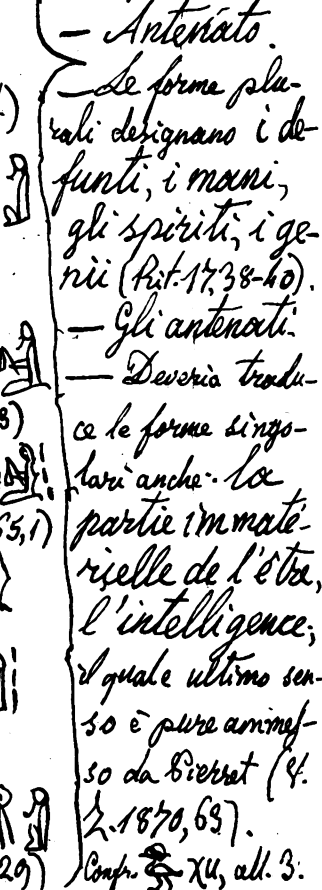 — Antenato.
— Le forme plu-
rali designano i de-
funti, i mani,
gli spiriti, i ge-
nii (Rit. 17,38-40).
— Gli antenati.
— Deveria tradu-
ce le forme singo-
lari anche: la
partie immaté-
rielle de l'être,
l'intelligence;
il quale ultimo sen-
so è pure ammes-
so da Pierret (
Z. 1870, 63).
Confr. XII, all. 3.